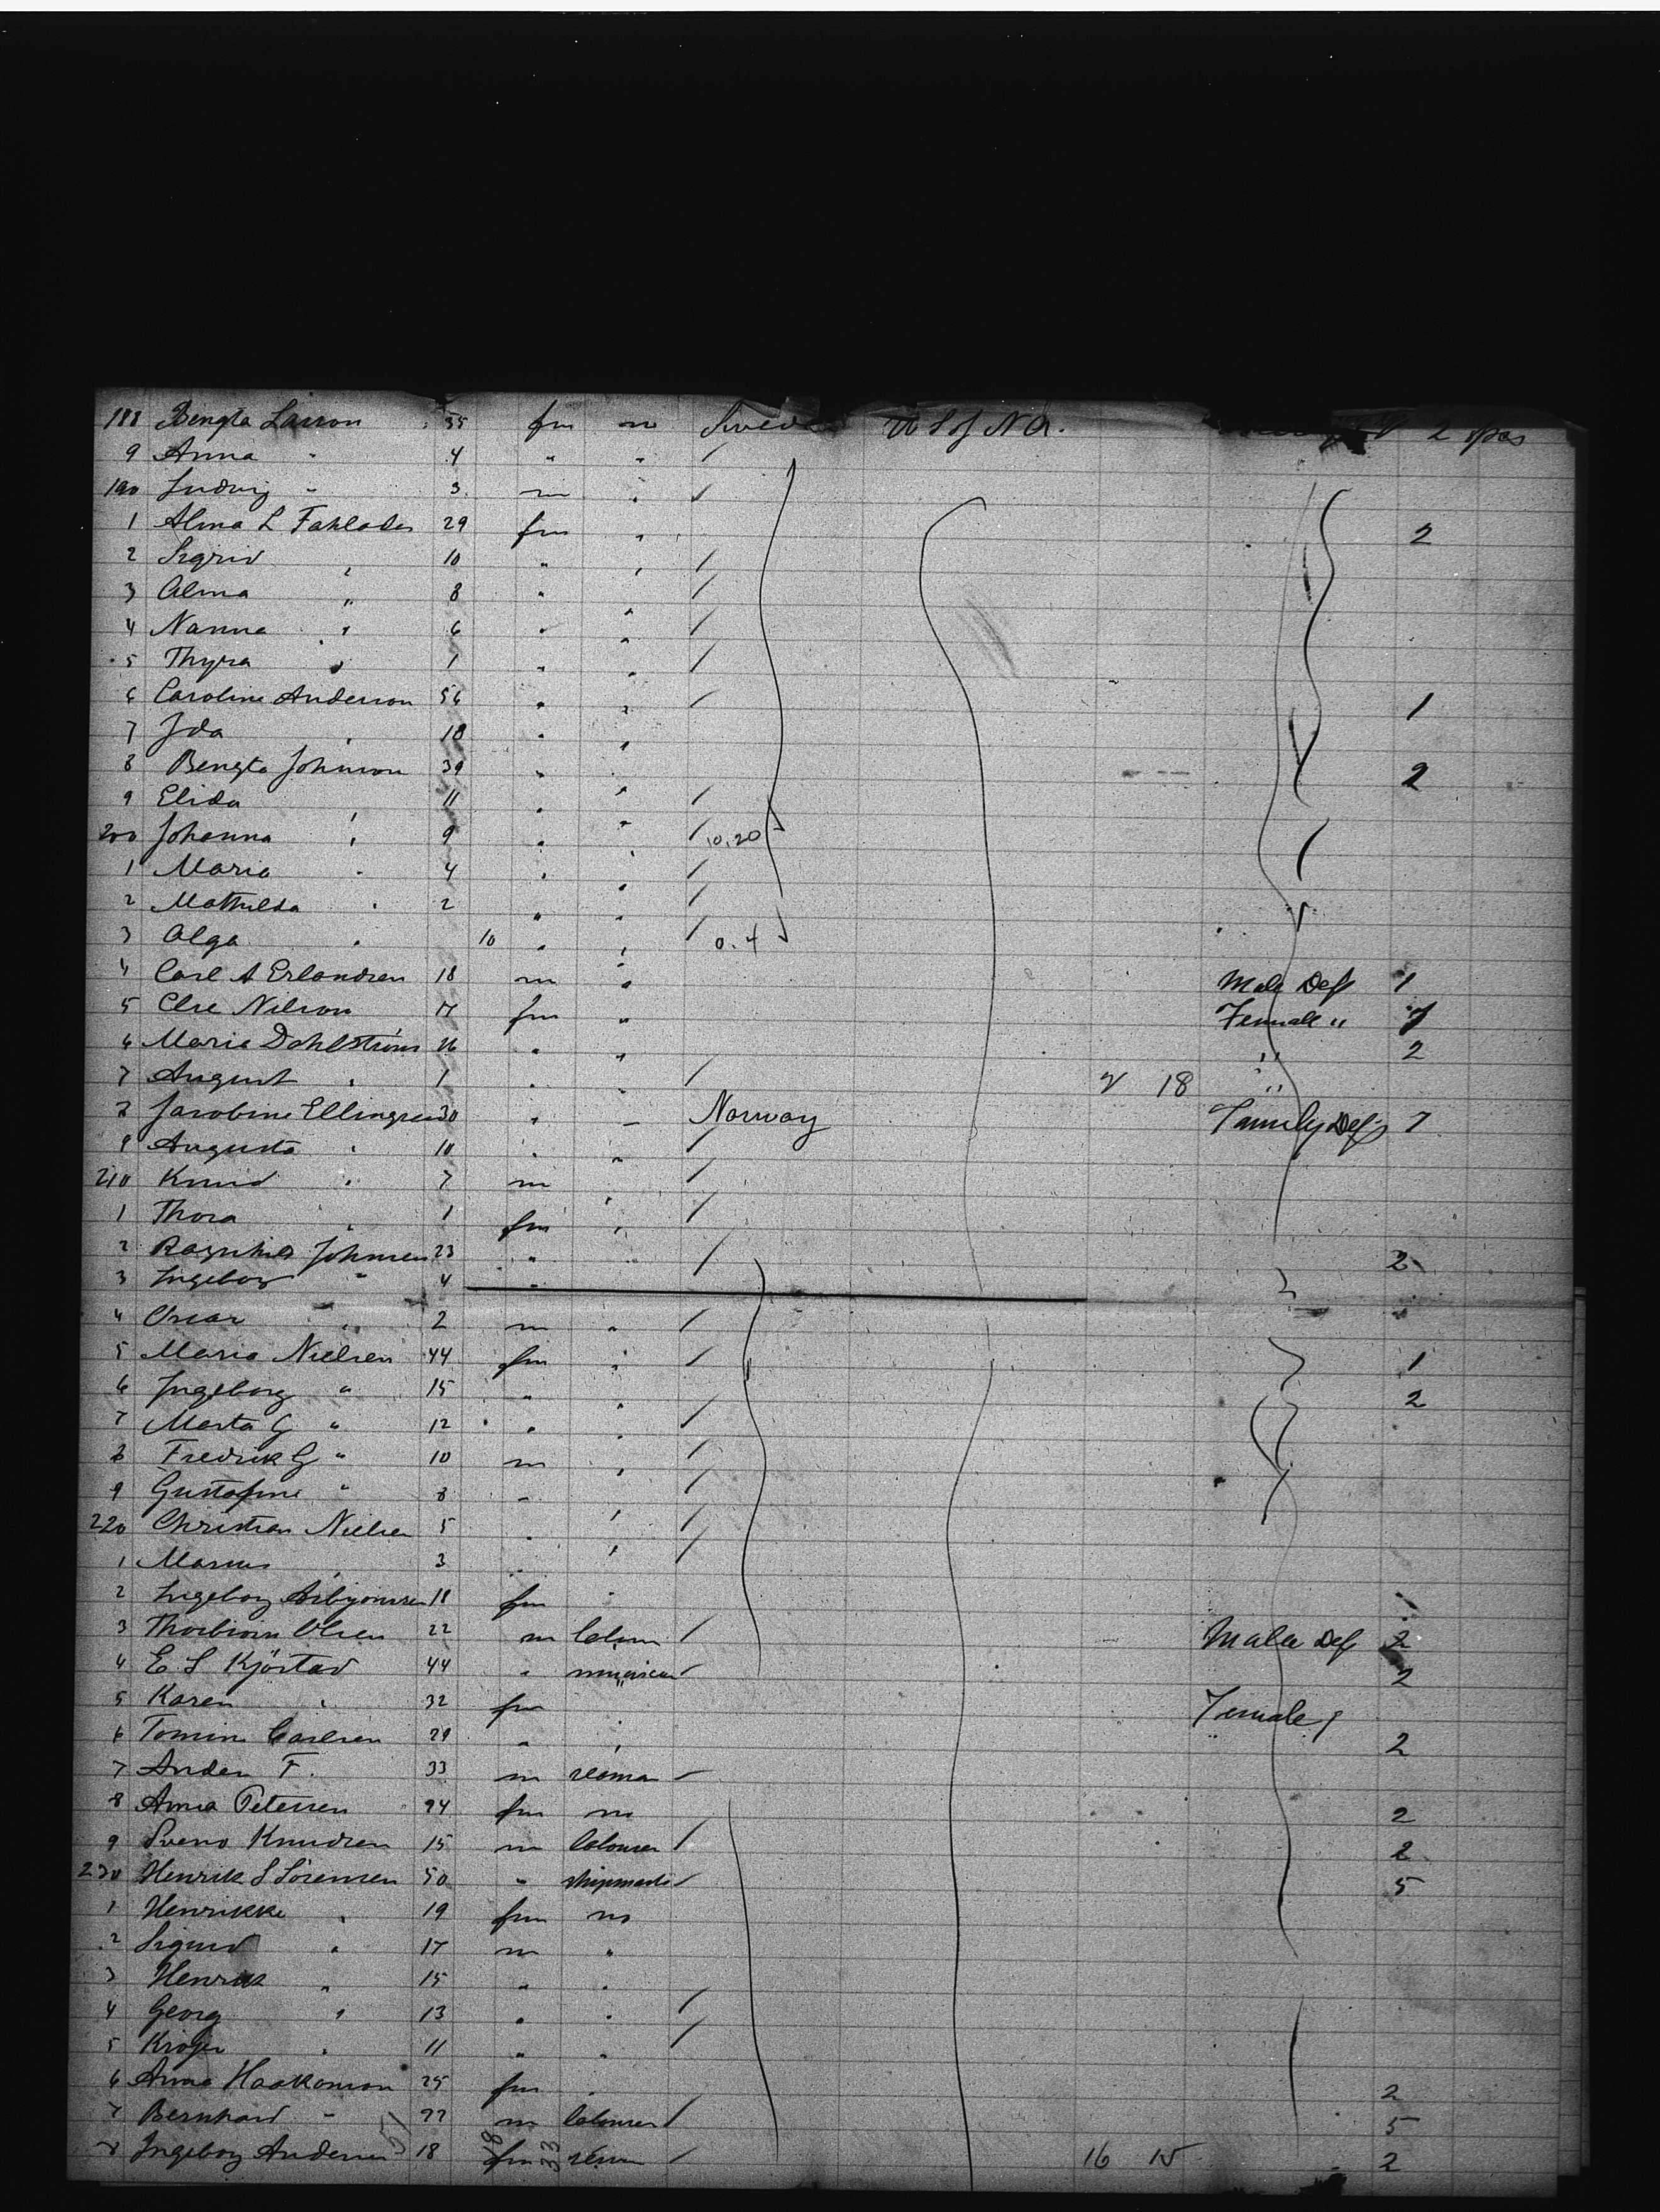 188 Bengta Larson 35 fm no Sweden U S of N A. 2 pcs
9 Anna " 4 " "
190 Ludvig " 3 m "
1 Alma L Fahlades 29 fm " 2
2 Sigrid " 10 " "
3 Alma " 8 " "
4 Nanna " 6 " "
5 Thyra " 1 " "
6 Caroline Anderson 56 " " 1
7 Ida " 18 " "
8 Bengta Johnson 39 " " 2
9 Elida " 11 " "
200 Johanna " 9 " " 0.20
1 Maria " 4 " "
2 Mathilda " 2 " "
3 Olga " 10 " " 0.4
4 Carl A Erlandsen 18 m " Male Def 1
5 Else Nilson 17 fm " Female " 1
6 Maria Dahlström 26 " " " 2
7 August " 1 " " 18 "
8 Jacobine Ellingsen 30 " " Norway Family Def 7
9 Augusta " 10 " "
210 Knud " 7 m "
1 Thora " 1 fm "
2 Ragnhild Johnsen 23 " " 2
3 Ingeborg " 4 "
4 Oscar " 2 m "
5 Maria Nielsen 44 fm " 1
6 Ingeborg " 15 " " 2
7 Marta G " 12 " "
8 Fredrik G " 10 m "
9 Gustafine " 8 "
220 Christian Nielsen 5 " "
1 Marius " 3 " "
2 Ingeborg Asbjornsen 18 fm "
3 Thorbiorn Olsen 22 m Male Def 2
4 E S Kjörstad 44 " musician 2
5 Karen " 32 fm " Female
6 Carlsen 29 " " 2
7 Anden F. 33 m seaman
8 Anna Petersen 24 fm no 2
9 Svend Knudsen 15 m labourer 2
230 Henrik S Sörensen 50 " 5
1 Henrikke " 19 fm no
2 Sigurd " 17 m "
3 Henrik " 15 " "
4 Georg " 13 " "
5 Kröger " 11 " "
6 Anna Haakonson 25 fm " 2
7 Bernhard " 22 m labourer 5
8 Ingeborg Andersen 18 fm 16 15 2